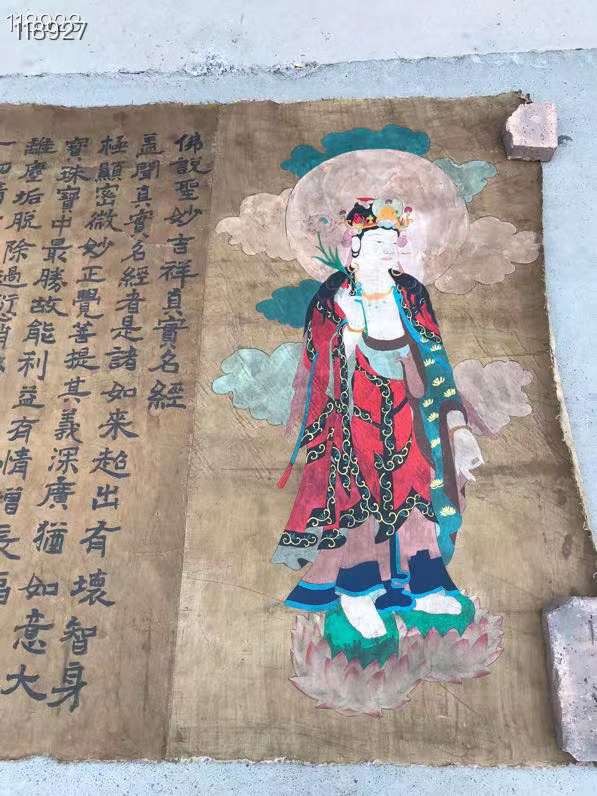 118927
佛說聖妙吉祥真實名經
蓋聞真實名經者是諸如來超出有壞智身
極顯密微妙正覺菩提其義深廣猶如意大
寶珠寶中最勝故能利益有情增長福
離塵垢脫除過愆消
一切